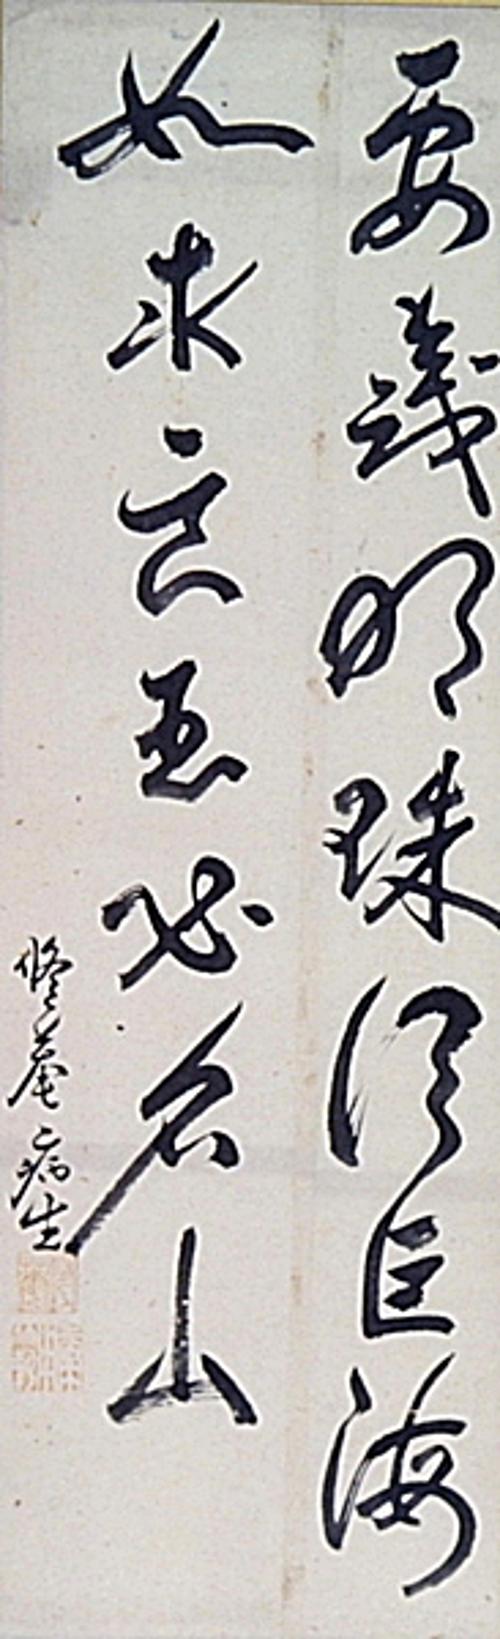 要識明珠須巨海
如求良玉必名山
修菴病生